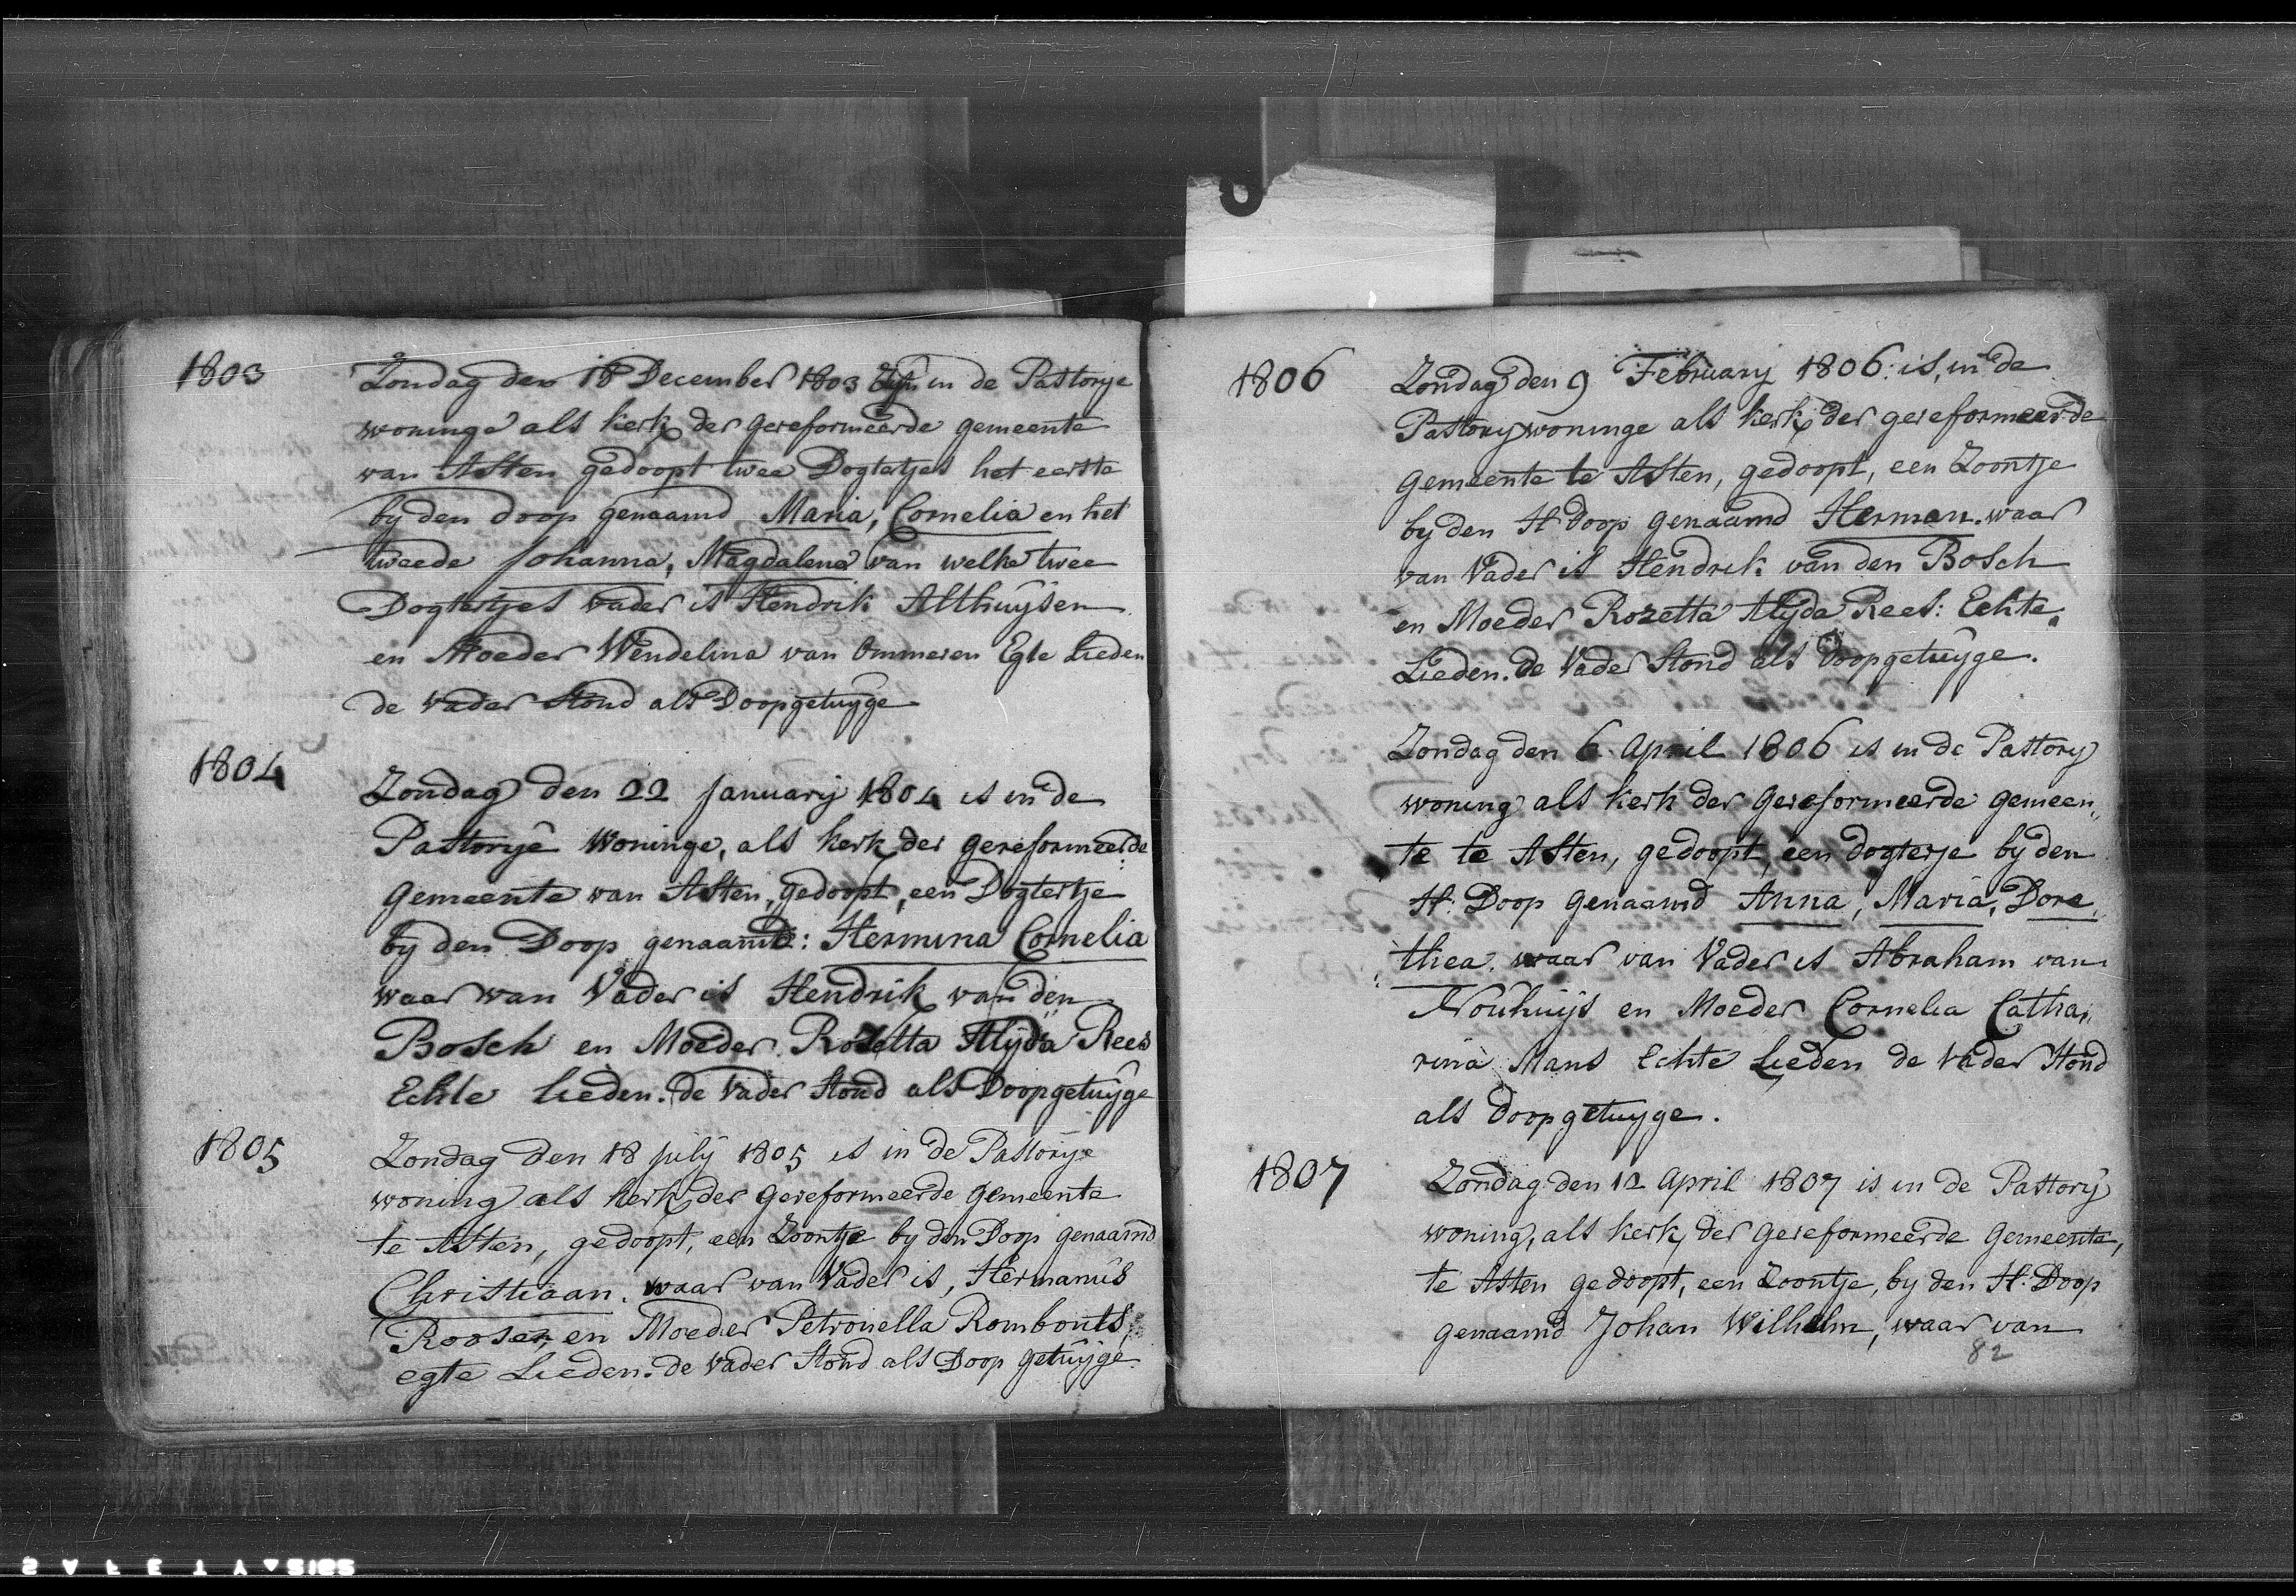 1803
Zondag den 18 December 1803 Zyn in de Pastorye
woninge als kerk der gereformeerde gemeente
van Asten gedoopt twee Dogtertjes het eerste
by den doop genaamd Maria, Cornelia en het
tweede Johanna, Magdalena van welke twee
Dogtertjes vader is Hendrik Althuysen
en Moeder Wendelina van Ommeren Egte Lieden
de vader stond als Doopgetuyge
1804
Zondag den 22 January 1804 is in de
Pastorye Woninge, als kerk der gereformeerde
gemeente van Asten, gedoopt, een Dogtertje
by den Doop genaamd: Hermina Cornelia
waar van Vader is Hendrik van den
Bosch en Moeder Rozetta Alyda Rees
Echte Lieden. de Vader stond als Doopgetuyge
1805
Zondag den 18 july 1805 is in de Pastorye
woning als kerk der gereformeerde gemeente
te Asten, gedoopt, een Zoontje by den Doop genaamd
Christiaan. waar van Vader is, Hermanus
Roosen, en Moeder Petronella Rombouts
egte Lieden. de Vader stond als Doop getuyge
1806
Zondag den 9 February 1806: is, in de
Pastorywoninge als kerk der gereformeerde
gemeente te Asten, gedoopt, een Zoontje
by den H Doop genaamd Herman. waar
van Vader is Hendrik van den Bosch
en Moeder Rozetta Alyda Rees: Echte
Lieden. de Vader stond als Doopgetuyge.
Zondag den 6 April 1806 is in de Pastory
woning als kerk der Gereformeerde gemeen„
te te Asten, gedoopt, een dogterje by den
H: Doop genaamd Anna, Maria, Dore„
„thea. waar van Vader is Abraham van
Nouhuijs en Moeder Cornelia Catha„
rina Mans Echte Lieden de Vader stond
als doopgetuyge.
1807
Zondag den 12 April 1807 is in de Pastory
woning, als kerk der Gereformeerde Gemeente,
te Asten gedoopt, een Zoontje, by den H: Doop
genaamd Johan Wilhelm, waar van
82
SAFETY▲5195